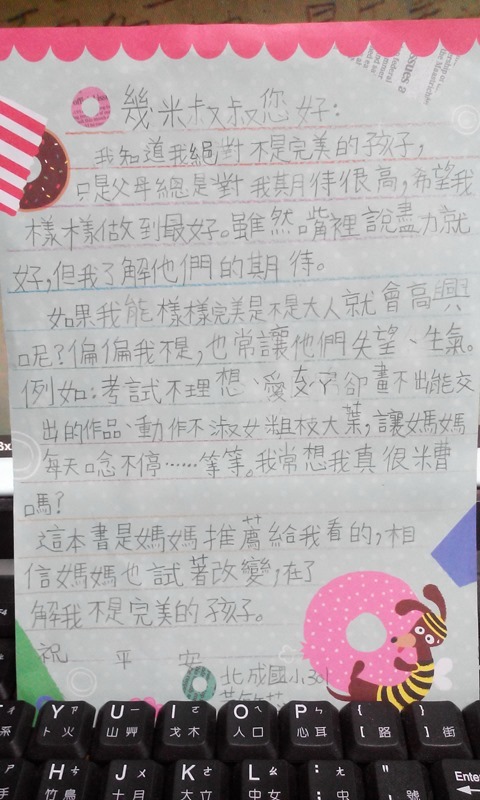 幾米叔叔您好:
我知道我絕對不是完美的孩子,
只是父母總是對我期待很高,希望我
樣樣做到最好。雖然嘴裡說盡力就
好,但我了解他們的期待。
如果我能樣樣完美是不是大人就會高興
呢?偏偏我不是,也常讓他們失望、生氣。
例如:考試不理想、愛畫卻畫不出能交
出的作品、動作不淑女粗枝大葉,讓媽媽
每天唸不停……等等。我常想我真很糟
嗎?
這本書是媽媽推薦給我看的,相
信媽媽也試著改變,在了
解我不是完美的孩子。
祝 平安
北成國小301
issues a
Y ㄗ 卜 火
U ㄧ 山 艸
I ㄛ 戈 木
O ㄟ 人 口
P ㄣ 心 耳
{ [ 路
} ] 街
H ㄘ 竹 鳥
J ㄨ 十 月
K ㄜ 大 立
L ㄠ 中 女
: ; 中
" ' 號
Enter